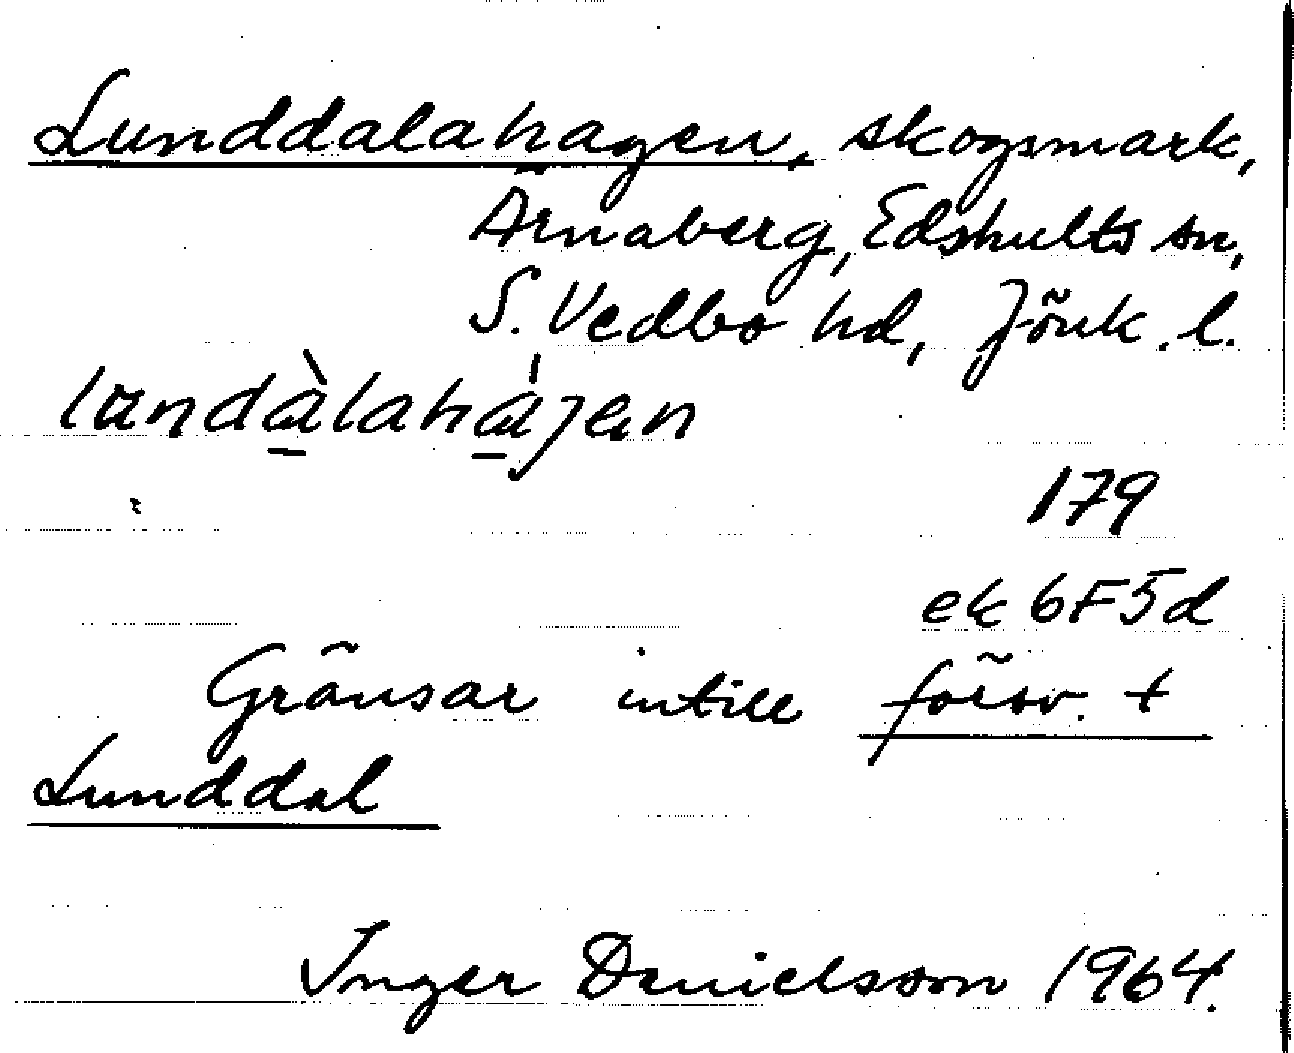 Lunddalahagen, skogsmark,
Ärnaberg, Edshults sn,
S. Vedbo hd, Jönk. l.
179
ek 6F5d
Gränsar intill försv. t
Lunddal
Inger Danielsson 1964.